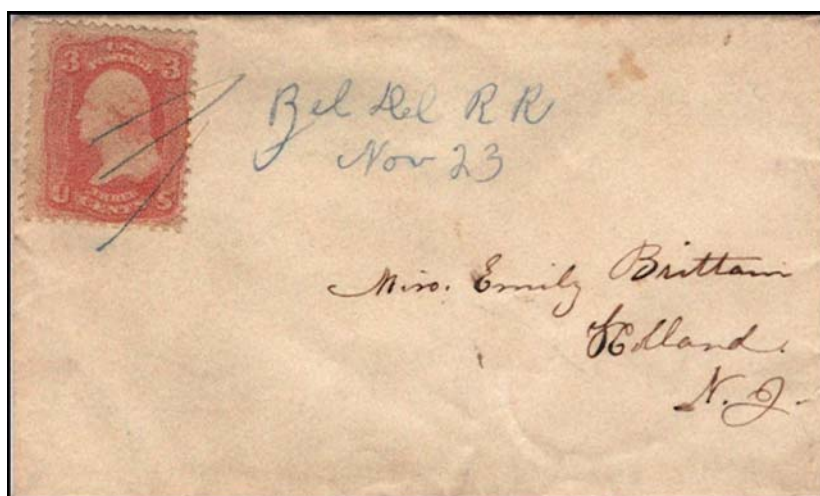 U.S.
POSTAGE
3 3
U S
THREE
CENTS
Bel Del R R
Nov 23
Miss. Emily Brittain
Holland.
N. J.